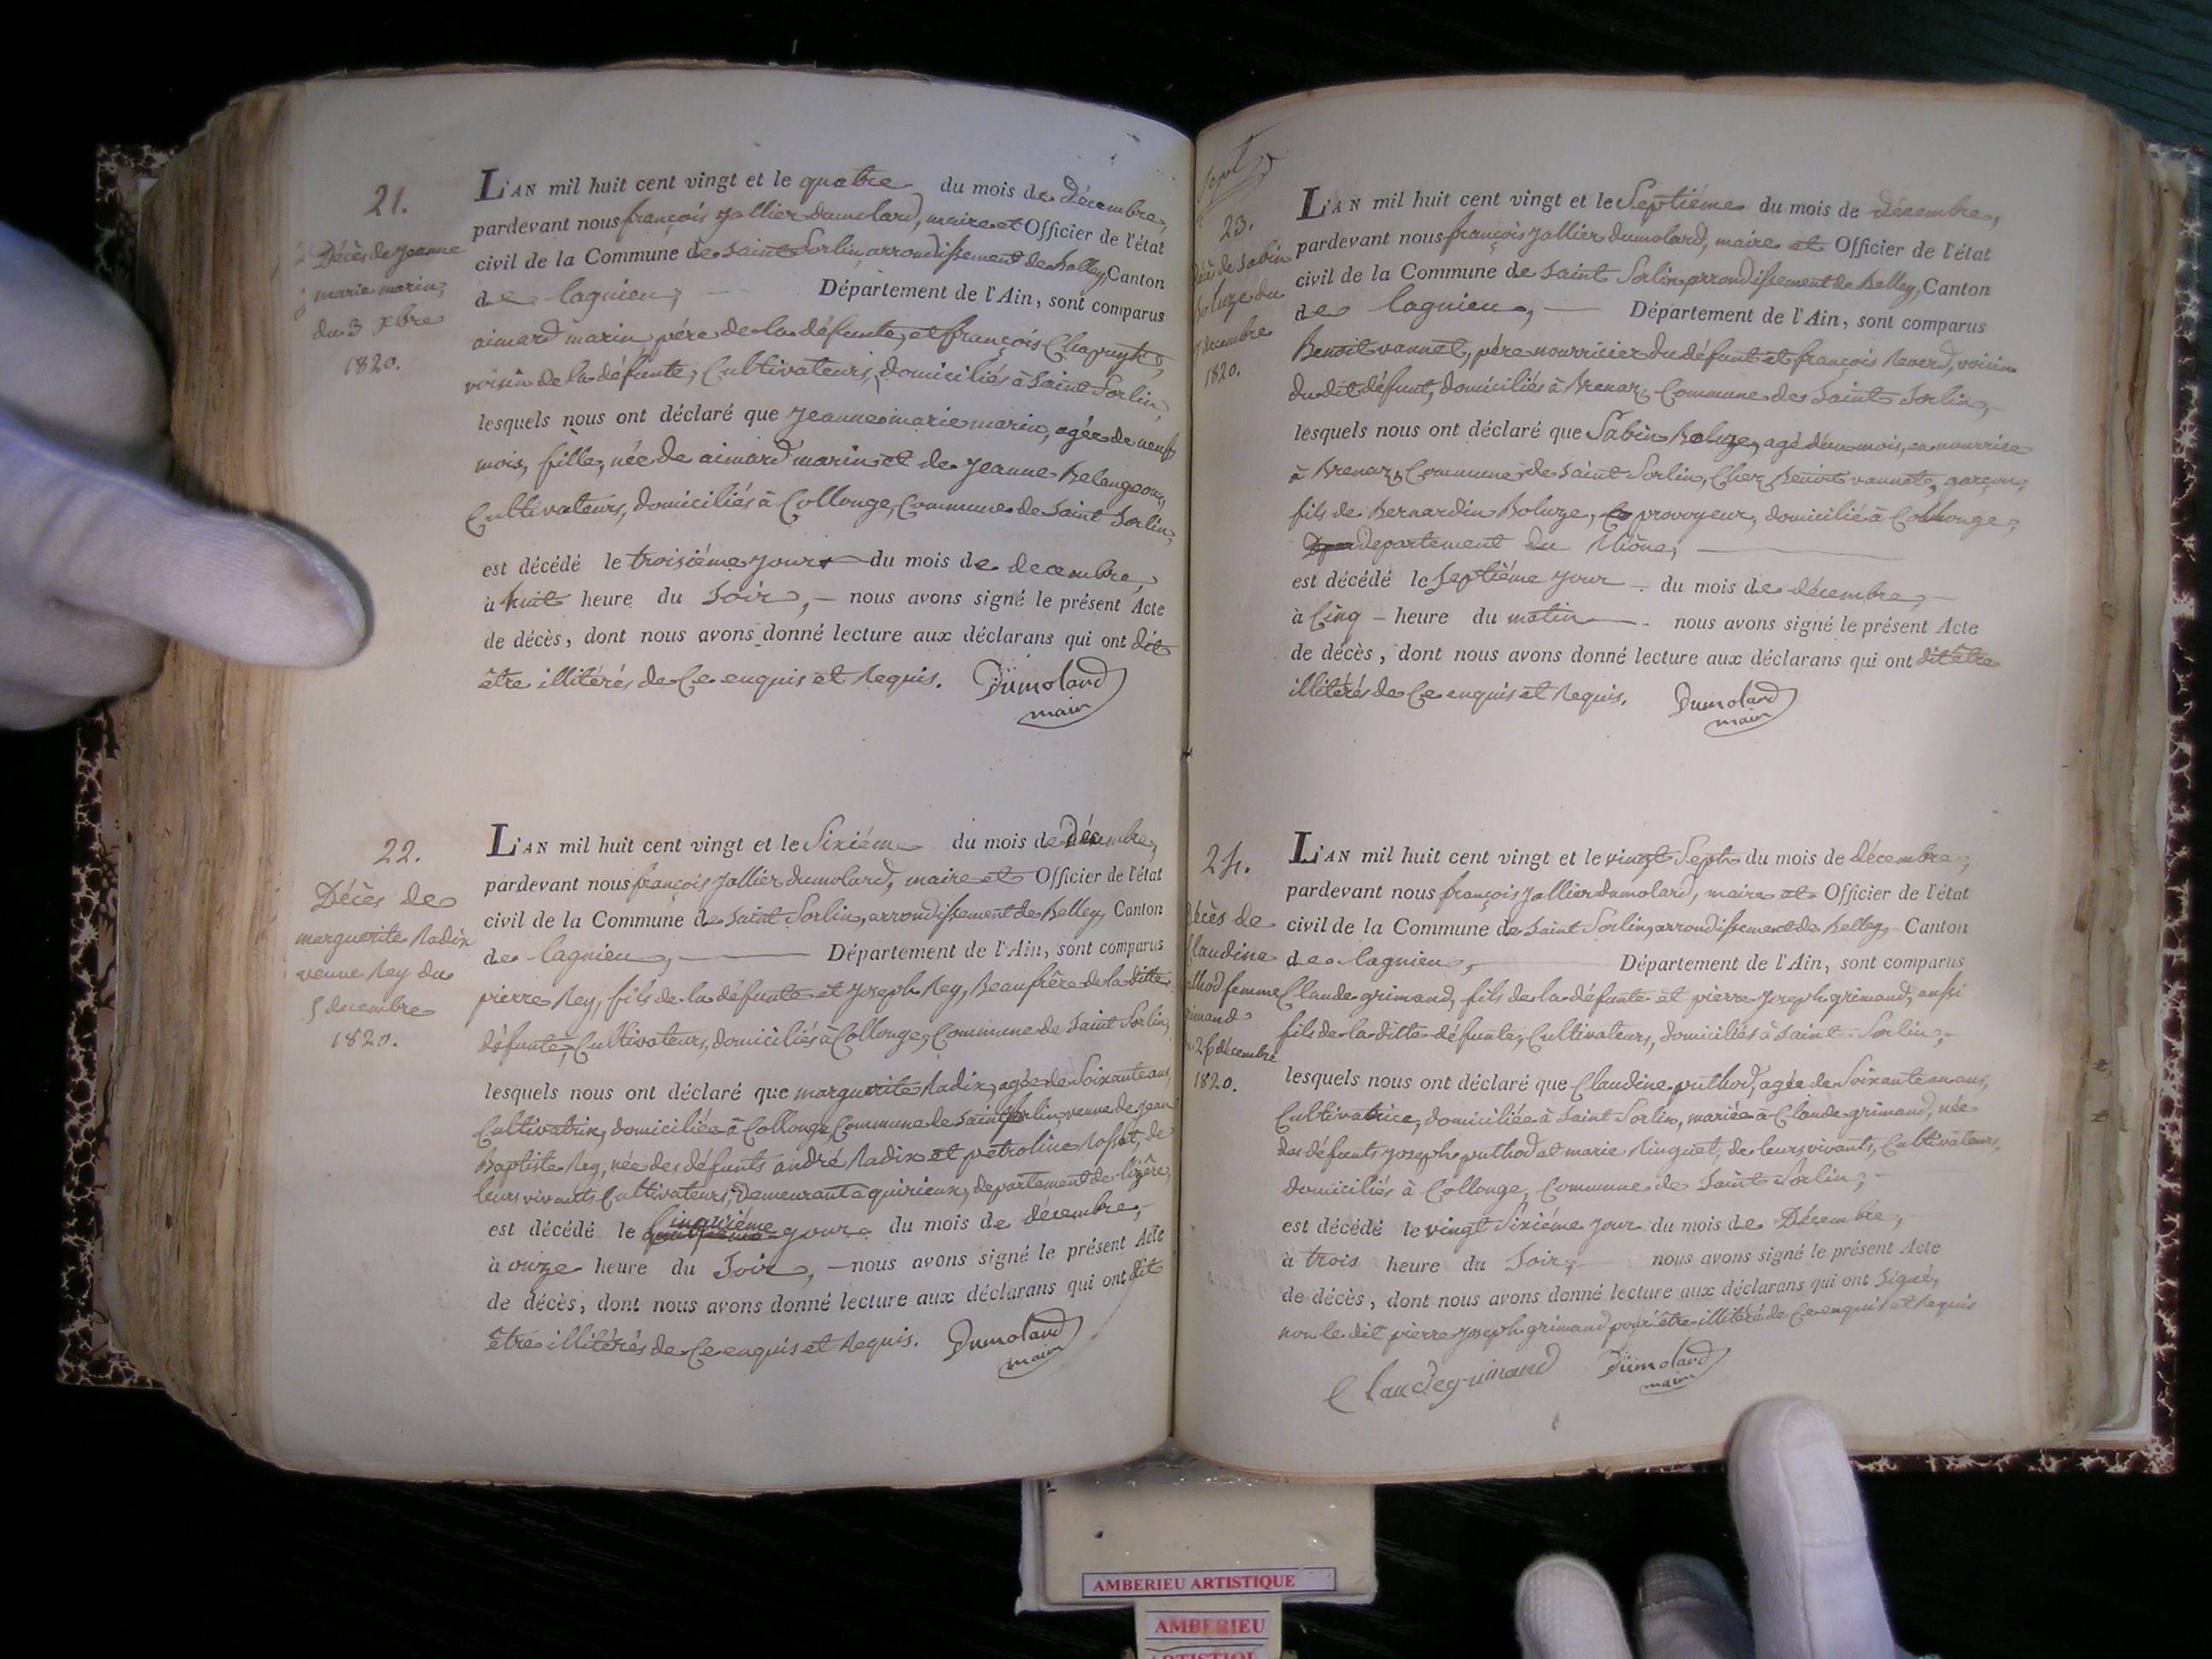 21.
Décès de jeanne
marie marin,
du 3 xbre
1820.
L'AN mil huit cent vingt et le quatre du mois de Décembre,
pardevant nous françois jallier dumolard, maire et Officier de l'état
civil de la Commune de saint Sorlin, arrondissement de belley, Canton
de lagnieu, Département de l'Ain, sont comparus
aimard marin père de la défunte, et françois
voisin de la défunte, Cultivateurs, domiciliés à saint Sorlin,
lesquels nous ont déclaré que jeanne marie marin, agée de neuf
mois, fille, née de aimard marin et de jeanne
Cultivateurs, domiciliés à Collonge, Commune de Saint Sorlin,
est décédé le troisiéme jour du mois de decembre,
à huit heure du Soir, – nous avons signé le présent Acte
de décès, dont nous avons donné lecture aux déclarans qui ont dit
être illitérés de Ce enquis et Requis. Dumolard
maire
22.
Décès de
marguerite Radix
veuve Rey du
5 decembre
1820.
L'AN mil huit cent vingt et le Sixiéme du mois de Décembre,
pardevant nous françois jallier dumolard, maire et Officier de l'état
civil de la Commune de saint Sorlin, arrondissement de Belley, Canton
de lagnieu, Département de l'Ain, sont comparus
pierre Rey, fils de la défunte et joseph Rey, Beaufrère de la ditte
défunte, Cultivateurs, domiciliés à Collonge, Commune de Saint Sorlin,
lesquels nous ont déclaré que marguerite Radix, agée de Soixante ans,
Cultivatrix, domiciliée à Collonge Commune de Saint Sorlin, veuve de jean
Baptiste Rey, née des défunts andré Radix et petroline Rosset, de
leurs vivants Cultivateurs, demeurant a quirieux, departement de lizère,
est décédé le Cinquiéme jour du mois de décembre,
à onze heure du Soir, – nous avons signé le présent Acte
de décès, dont nous avons donné lecture aux déclarans qui ont dit
être illitérés de Ce enquis et Requis. Dumolard
maire
23.
de Sabin
Boluze du
7 decembre
1820.
L'AN mil huit cent vingt et le Septiéme du mois de décembre,
pardevant nous françois jallier dumolard, maire et Officier de l'état
civil de la Commune de saint Sorlin, arrondissement de Belley, Canton
de lagnieu, Département de l'Ain, sont comparus
Benoit vannet, père nourricier du défunt et françois Reverd, voisin
du dit défunt, domiciliés à Brenaz, Commune de Saint Sorlin,
lesquels nous ont déclaré que Sabin Boluze, agé d'un mois, en nourrice
à Brenaz, Commune de Saint Sorlin, Chez Benoit vannet, garçon,
fils de Bernardin Boluze, provoyeur, domicilié à Collonge,
departement du Rhône,
est décédé le Septiéme jour du mois de décembre,
à Cinq heure du matin nous avons signé le présent Acte
de décès, dont nous avons donné lecture aux déclarans qui ont dit être
illitérés de Ce enquis et Requis. Dumolard
maire
24.
Décès de
Claudine
femme
grimand
26 décembre
1820.
L'AN mil huit cent vingt et le vingt Sept du mois de décembre,
pardevant nous françois jallier dumolard, maire et Officier de l'état
civil de la Commune de Saint Sorlin, arrondissement de Belley, Canton
de lagnieu, Département de l'Ain, sont comparus
Claude grimand, fils de la défunte et pierre joseph grimand, aussi
fils de la ditte défunte, Cultivateurs, domiciliés à Saint Sorlin,
lesquels nous ont déclaré que Claudine puthod, agée de Soixante un ans,
Cultivatrice, domiciliée à Saint Sorlin, mariée à Claude grimand, née
des défunts joseph puthod et marie Ringuet, de leurs vivants, Cultivateurs,
domiciliés à Collonge, Commune de Saint Sorlin,
est décédé le vingt Sixiéme jour du mois de Décembre,
à trois heure du Soir, nous avons signé le présent Acte
de décès, dont nous avons donné lecture aux déclarans qui ont Signé,
non le dit pierre joseph grimand pour être illitéré de Ce enquis et Requis
Claude grimand Dumolard
maire
AMBERIEU ARTISTIQUE
AMBERIEU
ARTISTIQUE